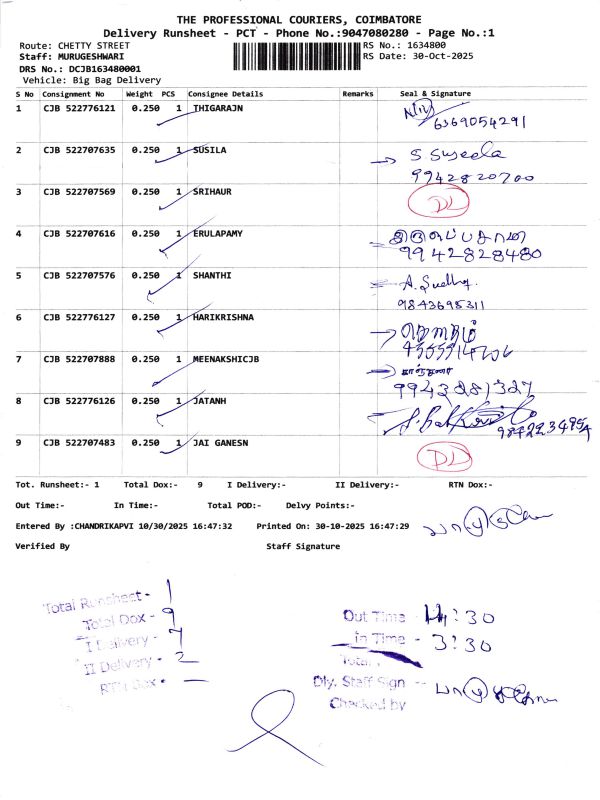 THE PROFESSIONAL COURIERS, COIMBATORE
Delivery Runsheet - PCT - Phone No.:9047080280 - Page No.:1
Route: CHETTY STREET RS No.: 1634800
Staff: MURUGESHWARI RS Date: 30-Oct-2025
DRS No.: DCJB163480001
Vehicle: Big Bag Delivery
S No Consignment No Weight PCS Consignee Details Remarks Seal & Signature
1 CJB 522776121 0.250 1 THIGARAJN
6369054291
2 CJB 522707635 0.250 1 SUSILA S Suseela
9942820700
3 CJB 522707569 0.250 1 SRIHAUR DL
4 CJB 522707616 0.250 1 ERULAPAMY
9942828480
5 CJB 522707576 0.250 1 SHANTHI A. Sudha
9843698311
6 CJB 522776127 0.250 1 HARIKRISHNA
7 CJB 522707888 0.250 1 MEENAKSHICJB
9943281327
8 CJB 522776126 0.250 1 JATANH
9 CJB 522707483 0.250 1 JAI GANESN DL
Tot. Runsheet:- 1 Total Dox:- 9 I Delivery:- II Delivery:- RTN Dox:-
Out Time:- In Time:- Total POD:- Delvy Points:-
Entered By :CHANDRIKAPVI 10/30/2025 16:47:32 Printed On: 30-10-2025 16:47:29
Verified By Staff Signature
Total Runsheet - 1
Total Dox - 9
I Delivery - 7
II Delivery - 2
RTN Dox - —
Out Time - 11:30
In Time - 3:30
Total
Dly. Staff Sign -
Checked by